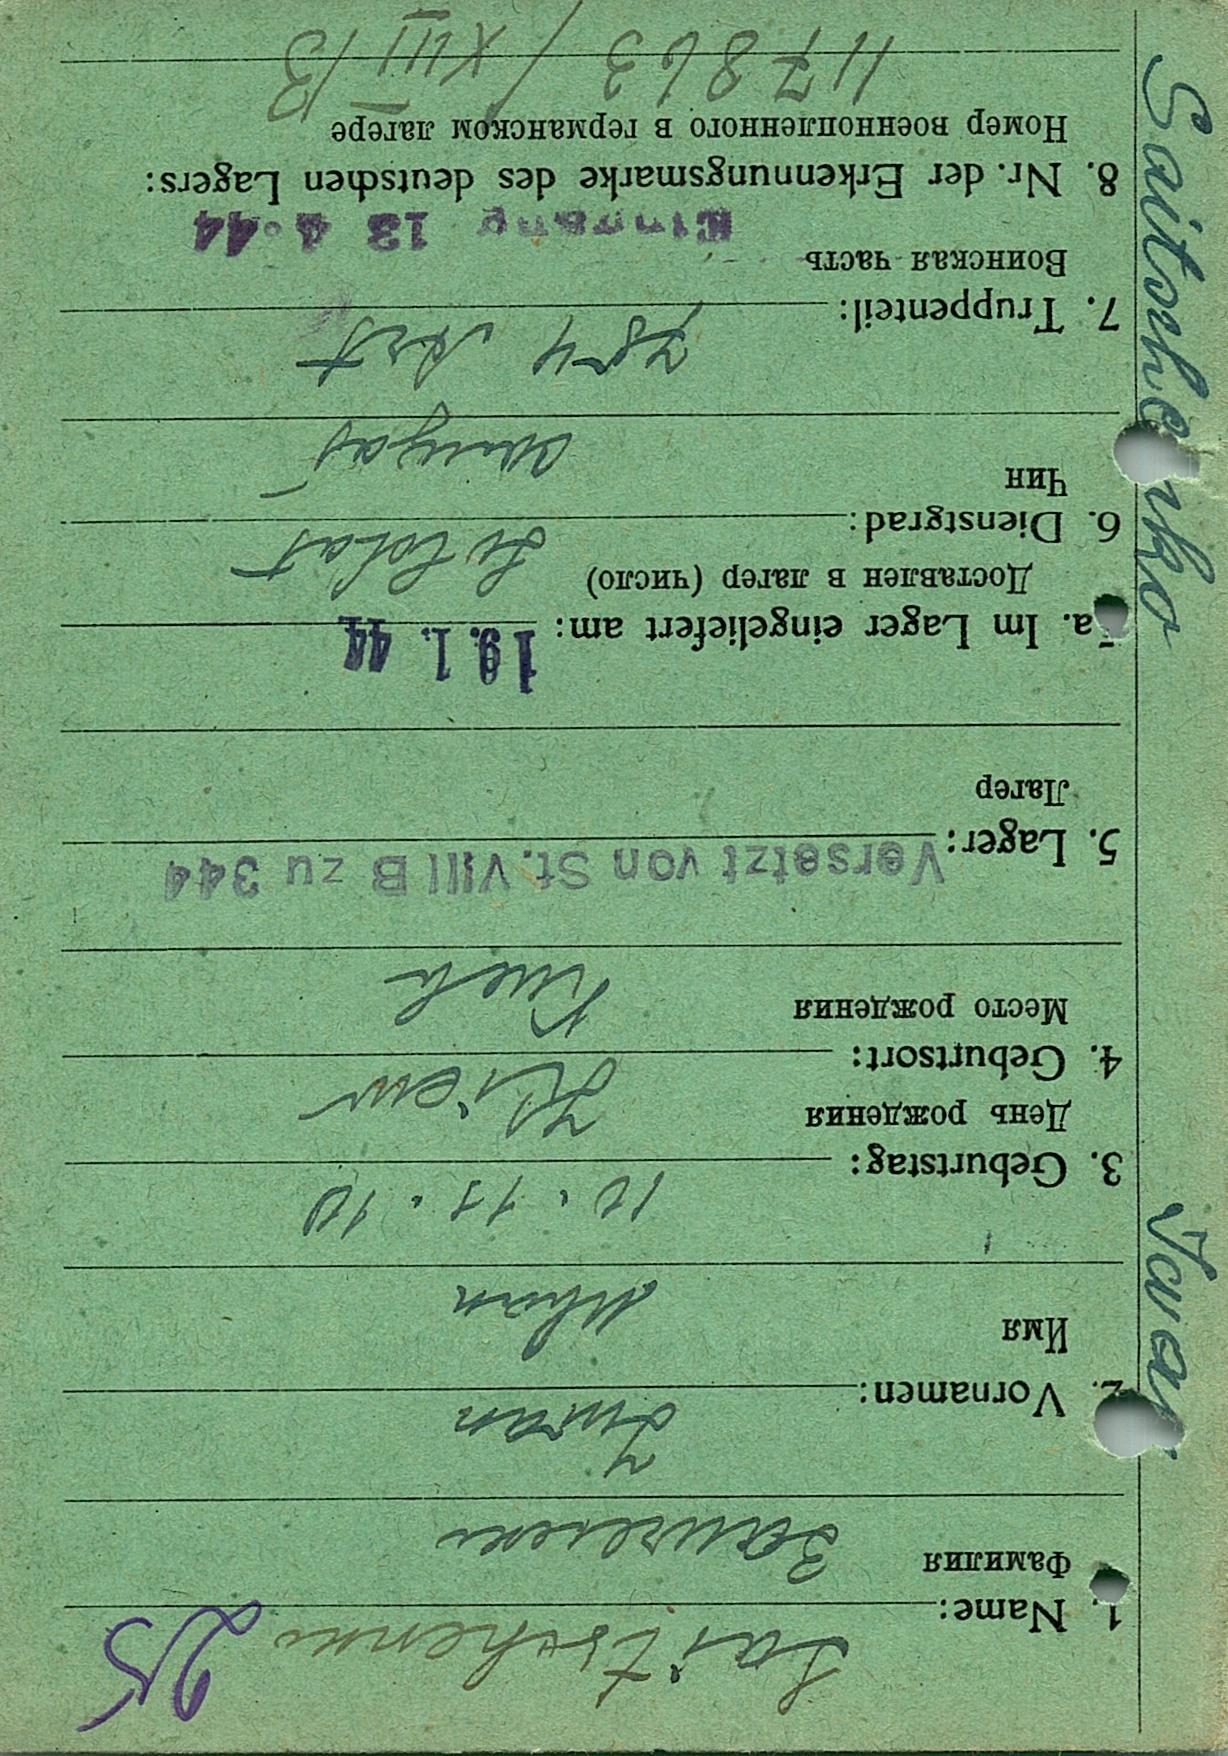 Saitschenko Ivan
25
1. Name: Saitschenko
Фамилия Зайченко
2. Vornamen: Iwan
Имя Иван
3. Geburtstag: 10.11.10
День рождения
4. Geburtsort: Kiew
Место рождения Киев
5. Lager: Versetzt von St. VIII B zu 344
Лагер
5a. Im Lager eingeliefert am: 19.1.44
Доставлен в лагер (число)
6. Dienstgrad: Soldat
Чин солдат
7. Truppenteil: 784
Воинская часть
Eingang 13 4.44
8. Nr. der Erkennungsmarke des deutschen Lagers:
Номер военнопленного в германском лагере
117863 / XIII B